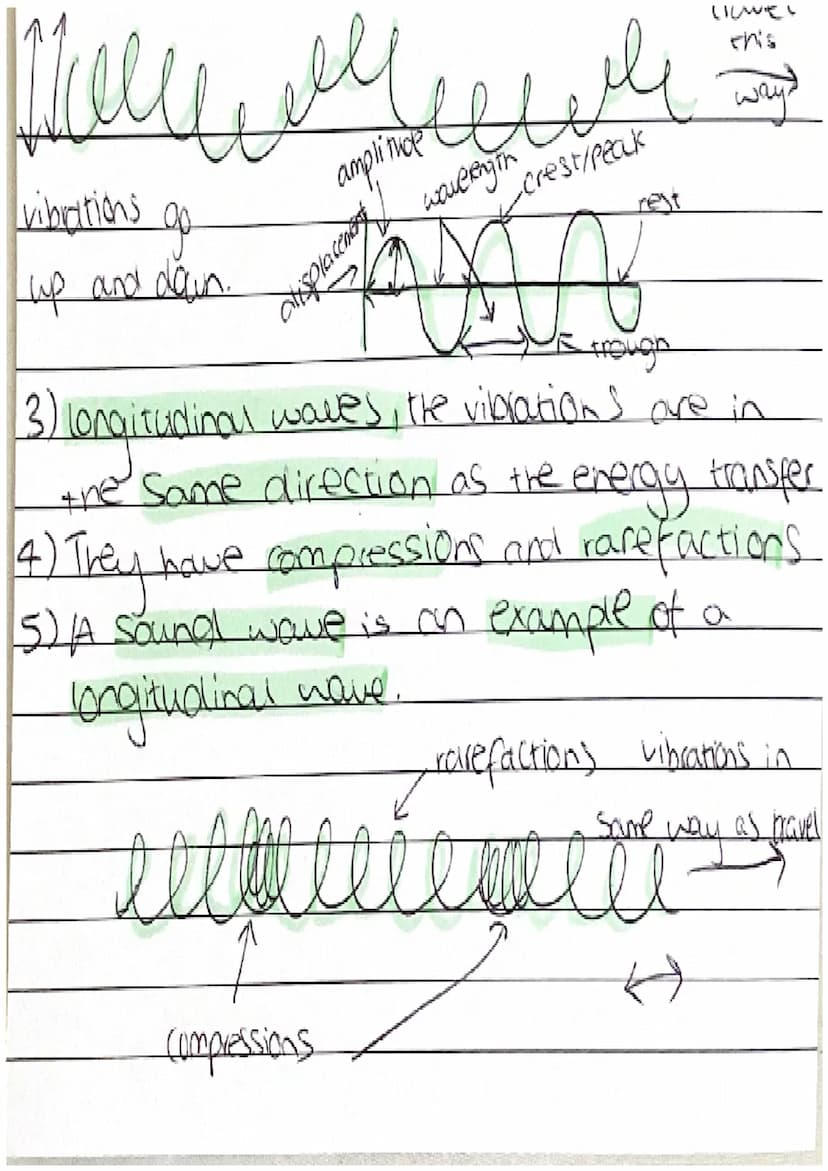 this
way
amplitude
wavelength
crest/peak
vibrations go
rest
displacement
up and down.
trough
3) longitudinal waves, the vibrations are in
the same direction as the energy transfer
4) They have compressions and rarefactions
5) A sound wave is an example of a
longitudinal wave.
rarefactions vibrations in
same way as travel
compressions